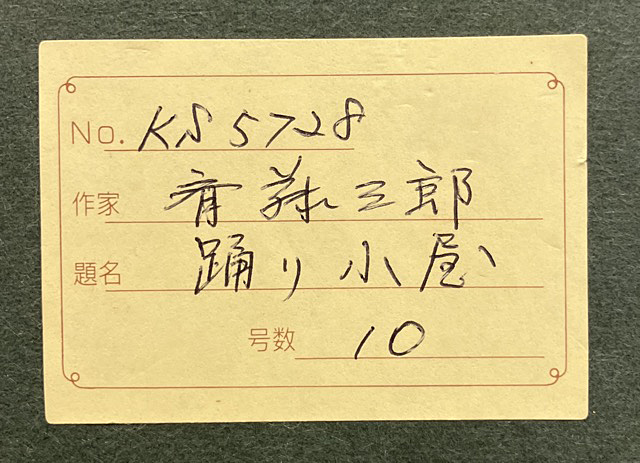 No. KS5728
作家 斉藤三郎
題名 踊り小屋
号数 10